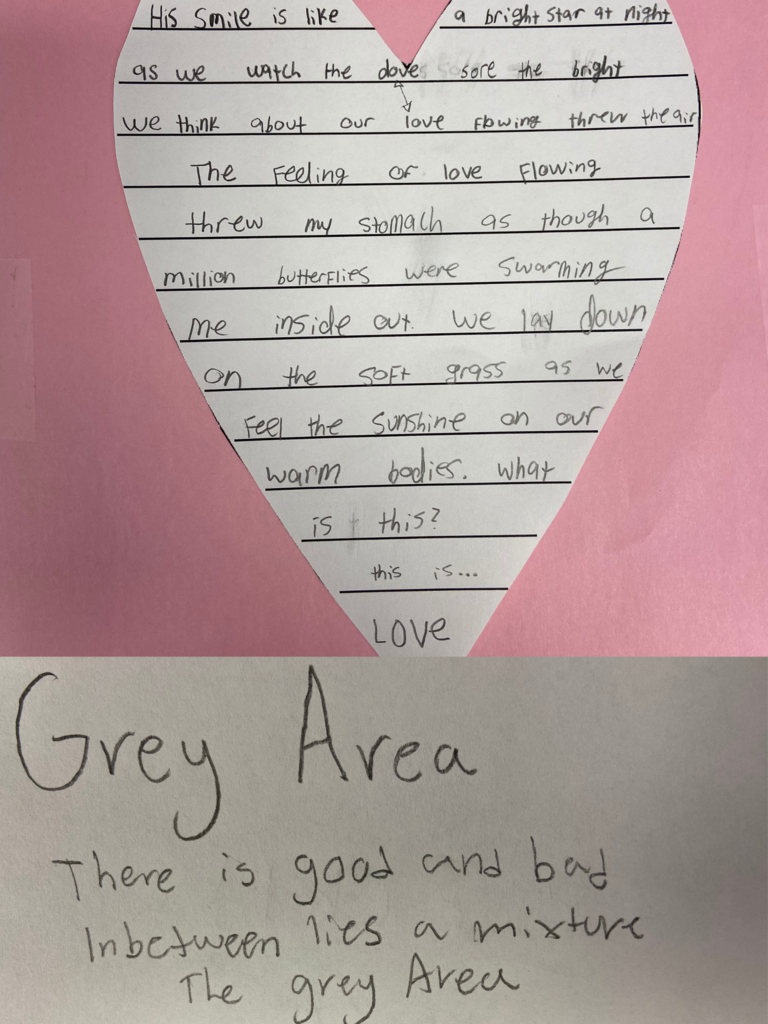 His Smile is like a bright star at night
as we watch the doves sore the bright
we think about our love flowing threw the air
The Feeling of love Flowing
threw my stomach as though a
million butterflies were swarming
me inside out. we lay down
on the soft grass as we
Feel the sunshine on our
warm bodies. what
is this?
this is...
LOVE
Grey Area
There is good and bad
Inbetween lies a mixture
The grey Area